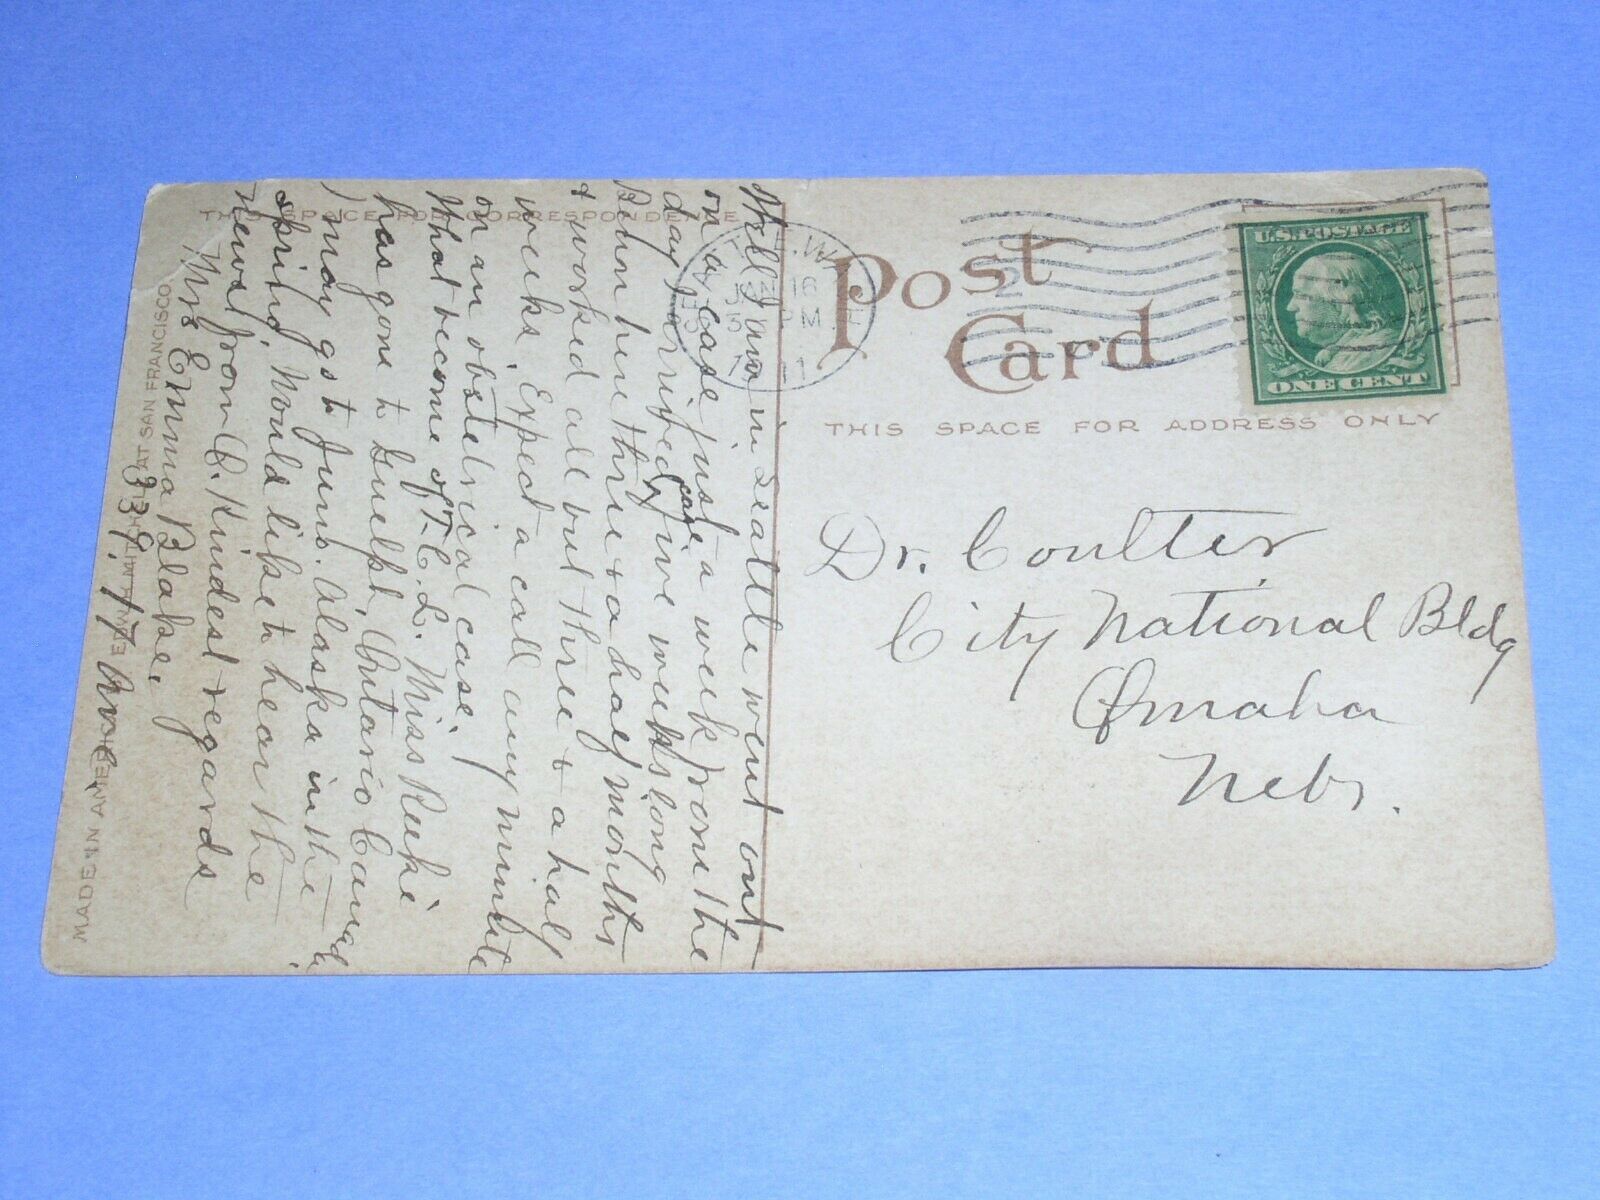 THIS SPACE FOR CORRESPONDENCE
Well I am in Seattle went out
on a case just a week from the
day I arrived, five weeks long
case
Been here three & a half months
& worked all but three & a half
weeks. Expect a call any minute
on an obstetrical case.
What become of T. C. L. Miss Ruche
has gone to Guelph, Ontario Canada
I may go to Juno. Alaska in the
spring, Would like to hear the
news from O. Kindest regards
Mrs Emma Blake.
339. 17 Ave.
MADE IN AMERICA EDW. H. MITCHELL AT SAN FRANCISCO.
Post
Card
THIS SPACE FOR ADDRESS ONLY
JAN 16
5 PM
11
U.S. POSTAGE
ONE CENT
Dr. Coulter
City National Bldg
Omaha
Nebr.